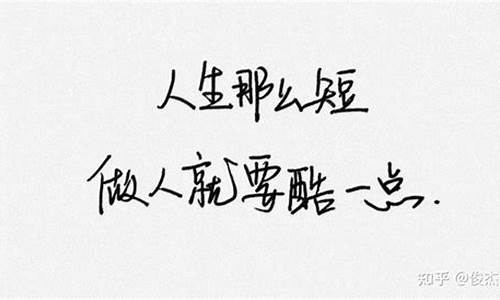 人生那么短
做人就要酷一点.
知乎 @俊杰